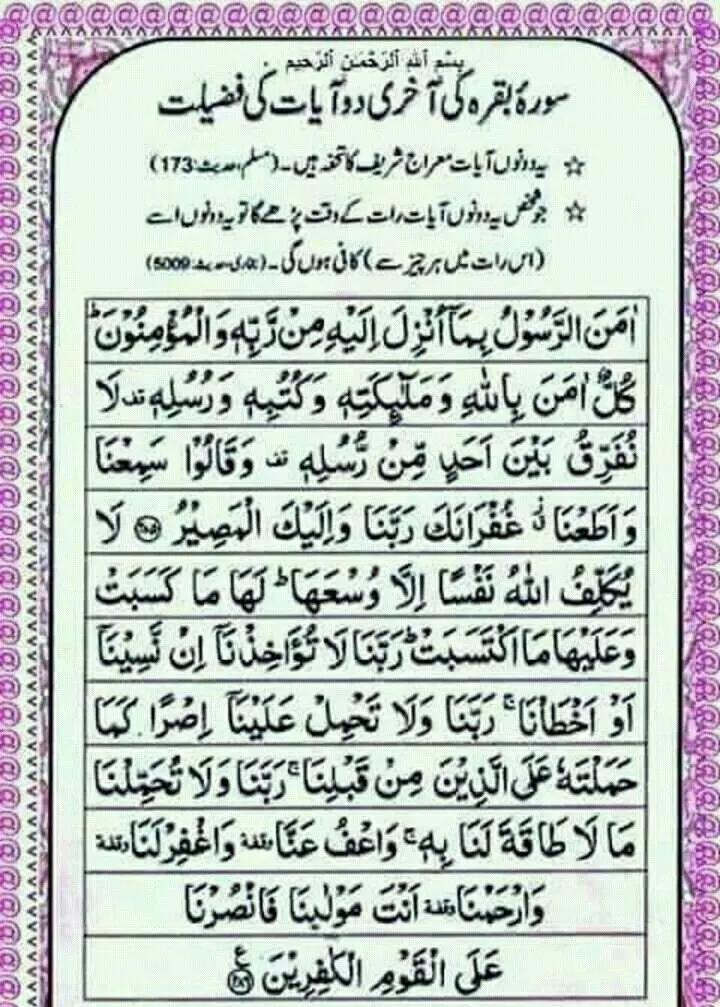 بِسْمِ اللهِ الرَّحْمٰنِ الرَّحِيْمِ
سورۂ بقرہ کی آخری دو آیات کی فضیلت
☆ یہ دونوں آیات معراج شریف کا تحفہ ہیں۔ (مسلم، حدیث: 173)
☆ جو شخص یہ دونوں آیات رات کے وقت پڑھے گا تو یہ دونوں اسے
(اس رات میں ہر چیز سے) کافی ہوں گی۔ (بخاری، حدیث: 5009)
اٰمَنَ الرَّسُوْلُ بِمَاۤ اُنْزِلَ اِلَيْهِ مِنْ رَّبِّهٖ وَالْمُؤْمِنُوْنَ ؕ
كُلٌّ اٰمَنَ بِاللهِ وَمَلٰٓئِكَتِهٖ وَكُتُبِهٖ وَرُسُلِهٖ قف لَا
نُفَرِّقُ بَيْنَ اَحَدٍ مِّنْ رُّسُلِهٖ قف وَقَالُوْا سَمِعْنَا
وَاَطَعْنَا ۫ غُفْرَانَكَ رَبَّنَا وَاِلَيْكَ الْمَصِيْرُ ﴿۲۸۵﴾ لَا
يُكَلِّفُ اللهُ نَفْسًا اِلَّا وُسْعَهَا ؕ لَهَا مَا كَسَبَتْ
وَعَلَيْهَا مَا اكْتَسَبَتْ ؕ رَبَّنَا لَا تُؤَاخِذْنَاۤ اِنْ نَّسِيْنَاۤ
اَوْ اَخْطَاْنَا ۚ رَبَّنَا وَلَا تَحْمِلْ عَلَيْنَاۤ اِصْرًا كَمَا
حَمَلْتَهٗ عَلَى الَّذِيْنَ مِنْ قَبْلِنَا ۚ رَبَّنَا وَلَا تُحَمِّلْنَا
مَا لَا طَاقَةَ لَنَا بِهٖ ۚ وَاعْفُ عَنَّا وقفة وَاغْفِرْ لَنَا وقفة
وَارْحَمْنَا وقفة اَنْتَ مَوْلٰىنَا فَانْصُرْنَا
عَلَى الْقَوْمِ الْكٰفِرِيْنَ ﴿۲۸۶﴾ ع